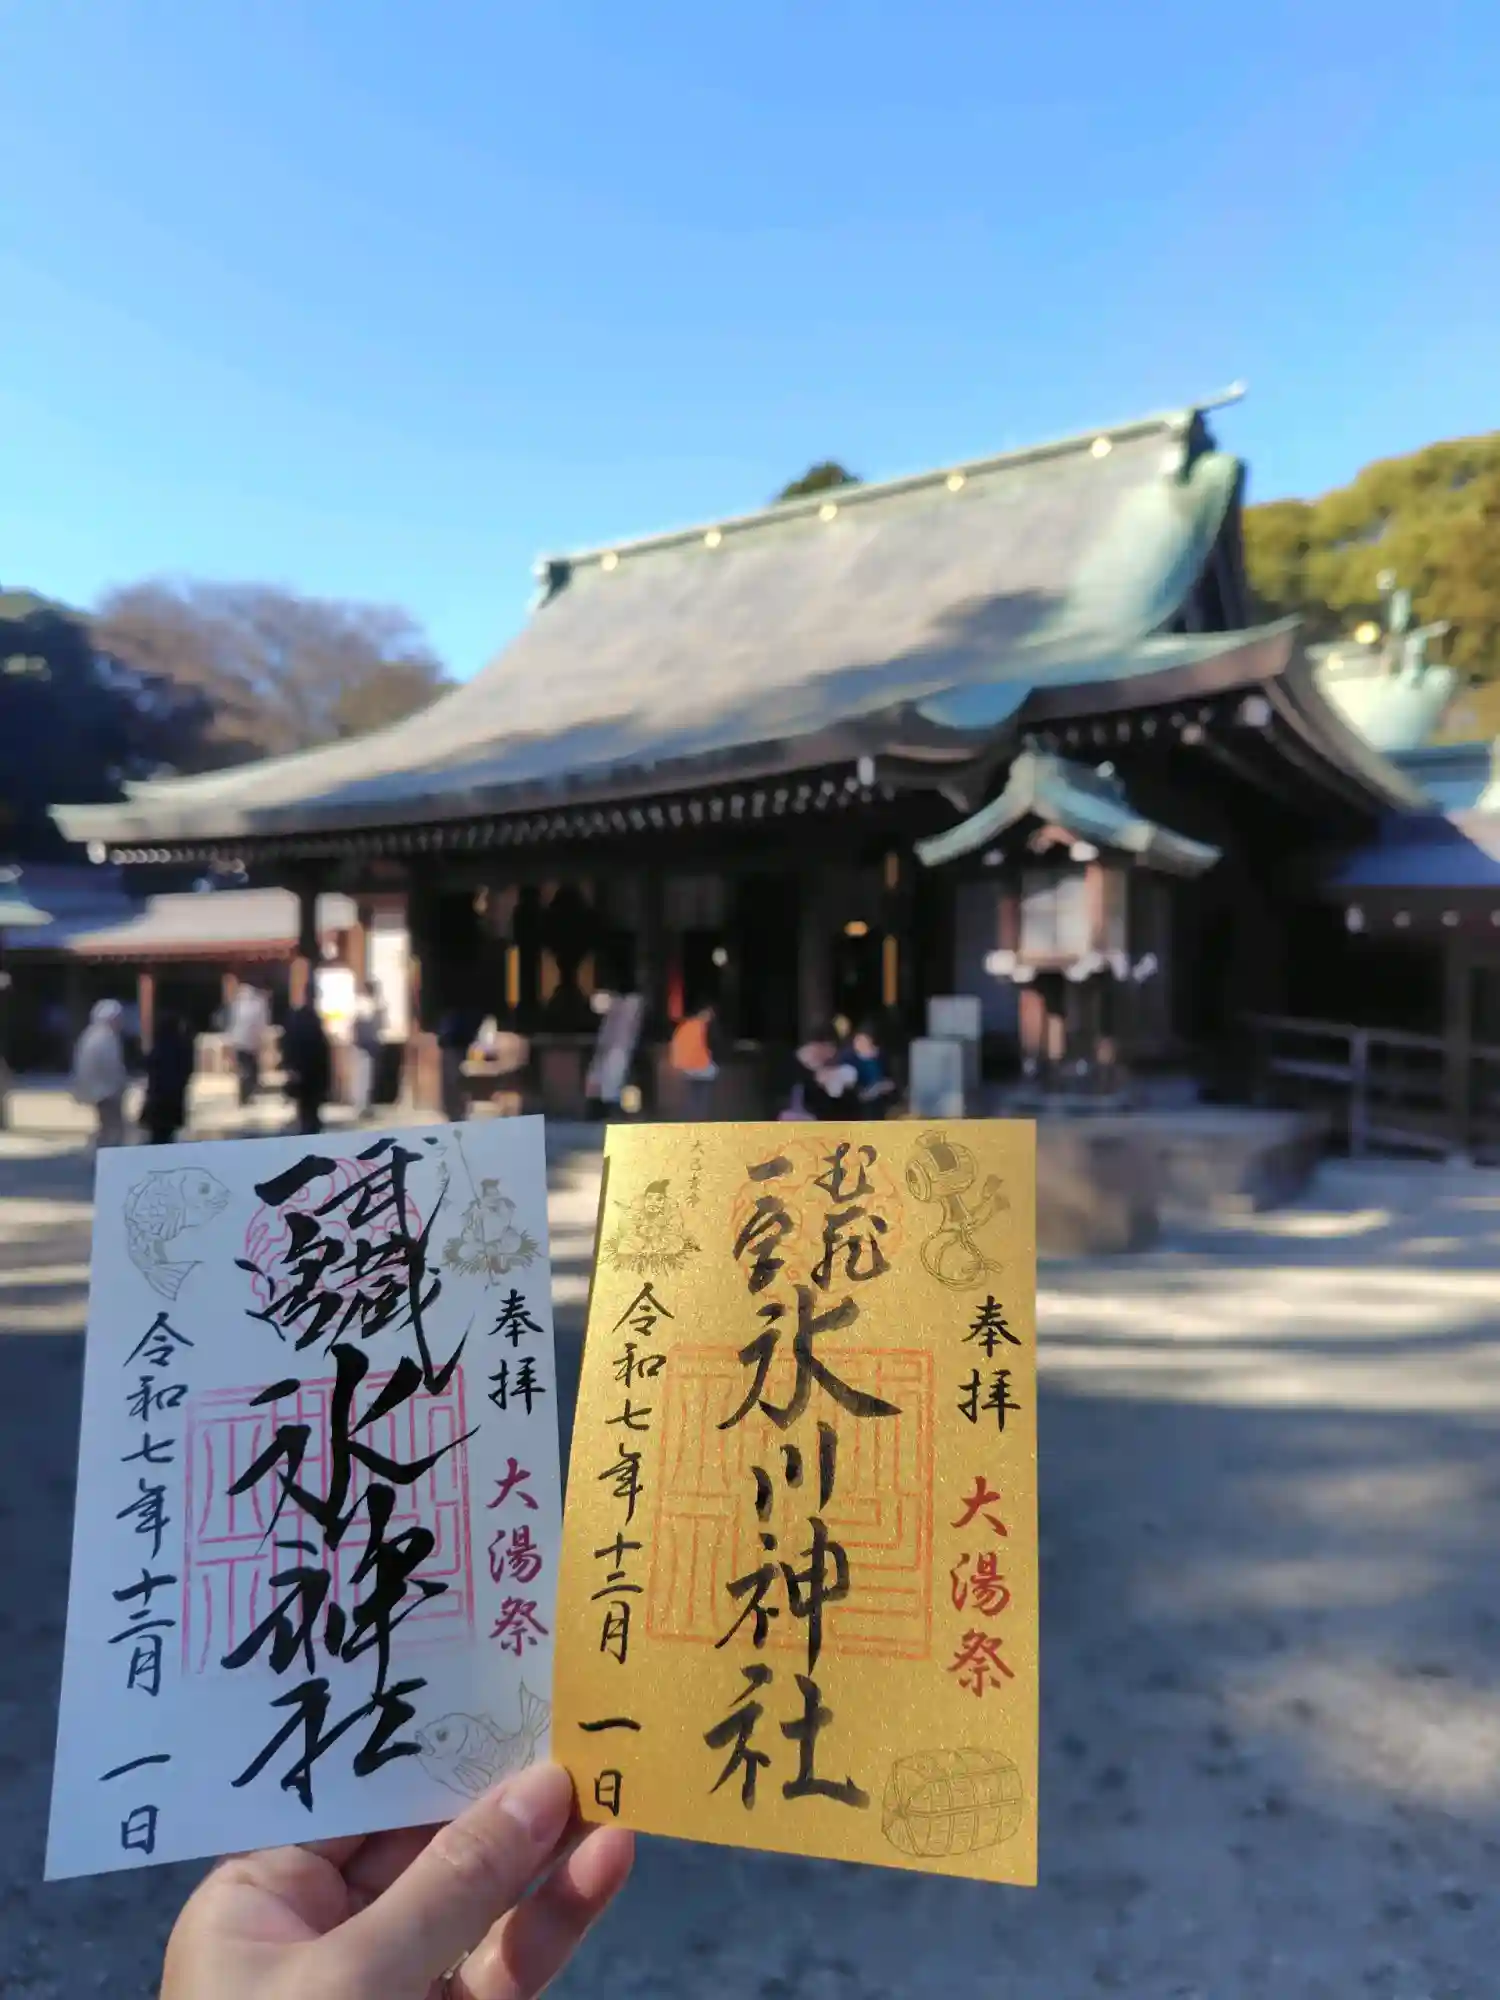 奉拝
大湯祭
武蔵
一宮
氷川神社
令和七年十二月
一日
奉拝
大湯祭
むさし
一宮
氷川神社
令和七年十二月
一日